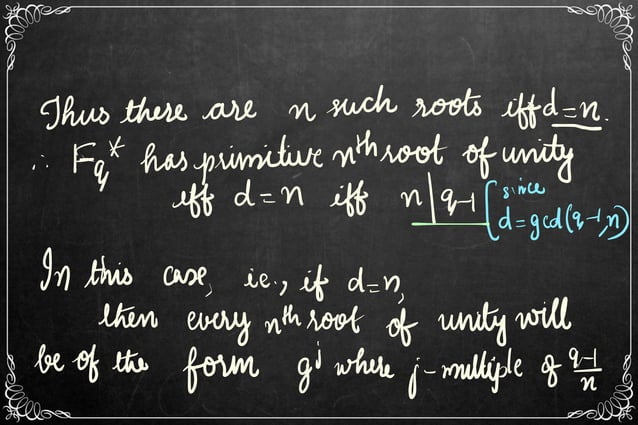 Thus there are n such roots iff d=n.
∴ F_q* has primitive nth root of unity
iff d=n iff n|q-1 [since
d=gcd(q-1,n)
In this case, ie., if d=n,
then every nth root of unity will
be of the form g^j where j-multiple of (q-1)/n